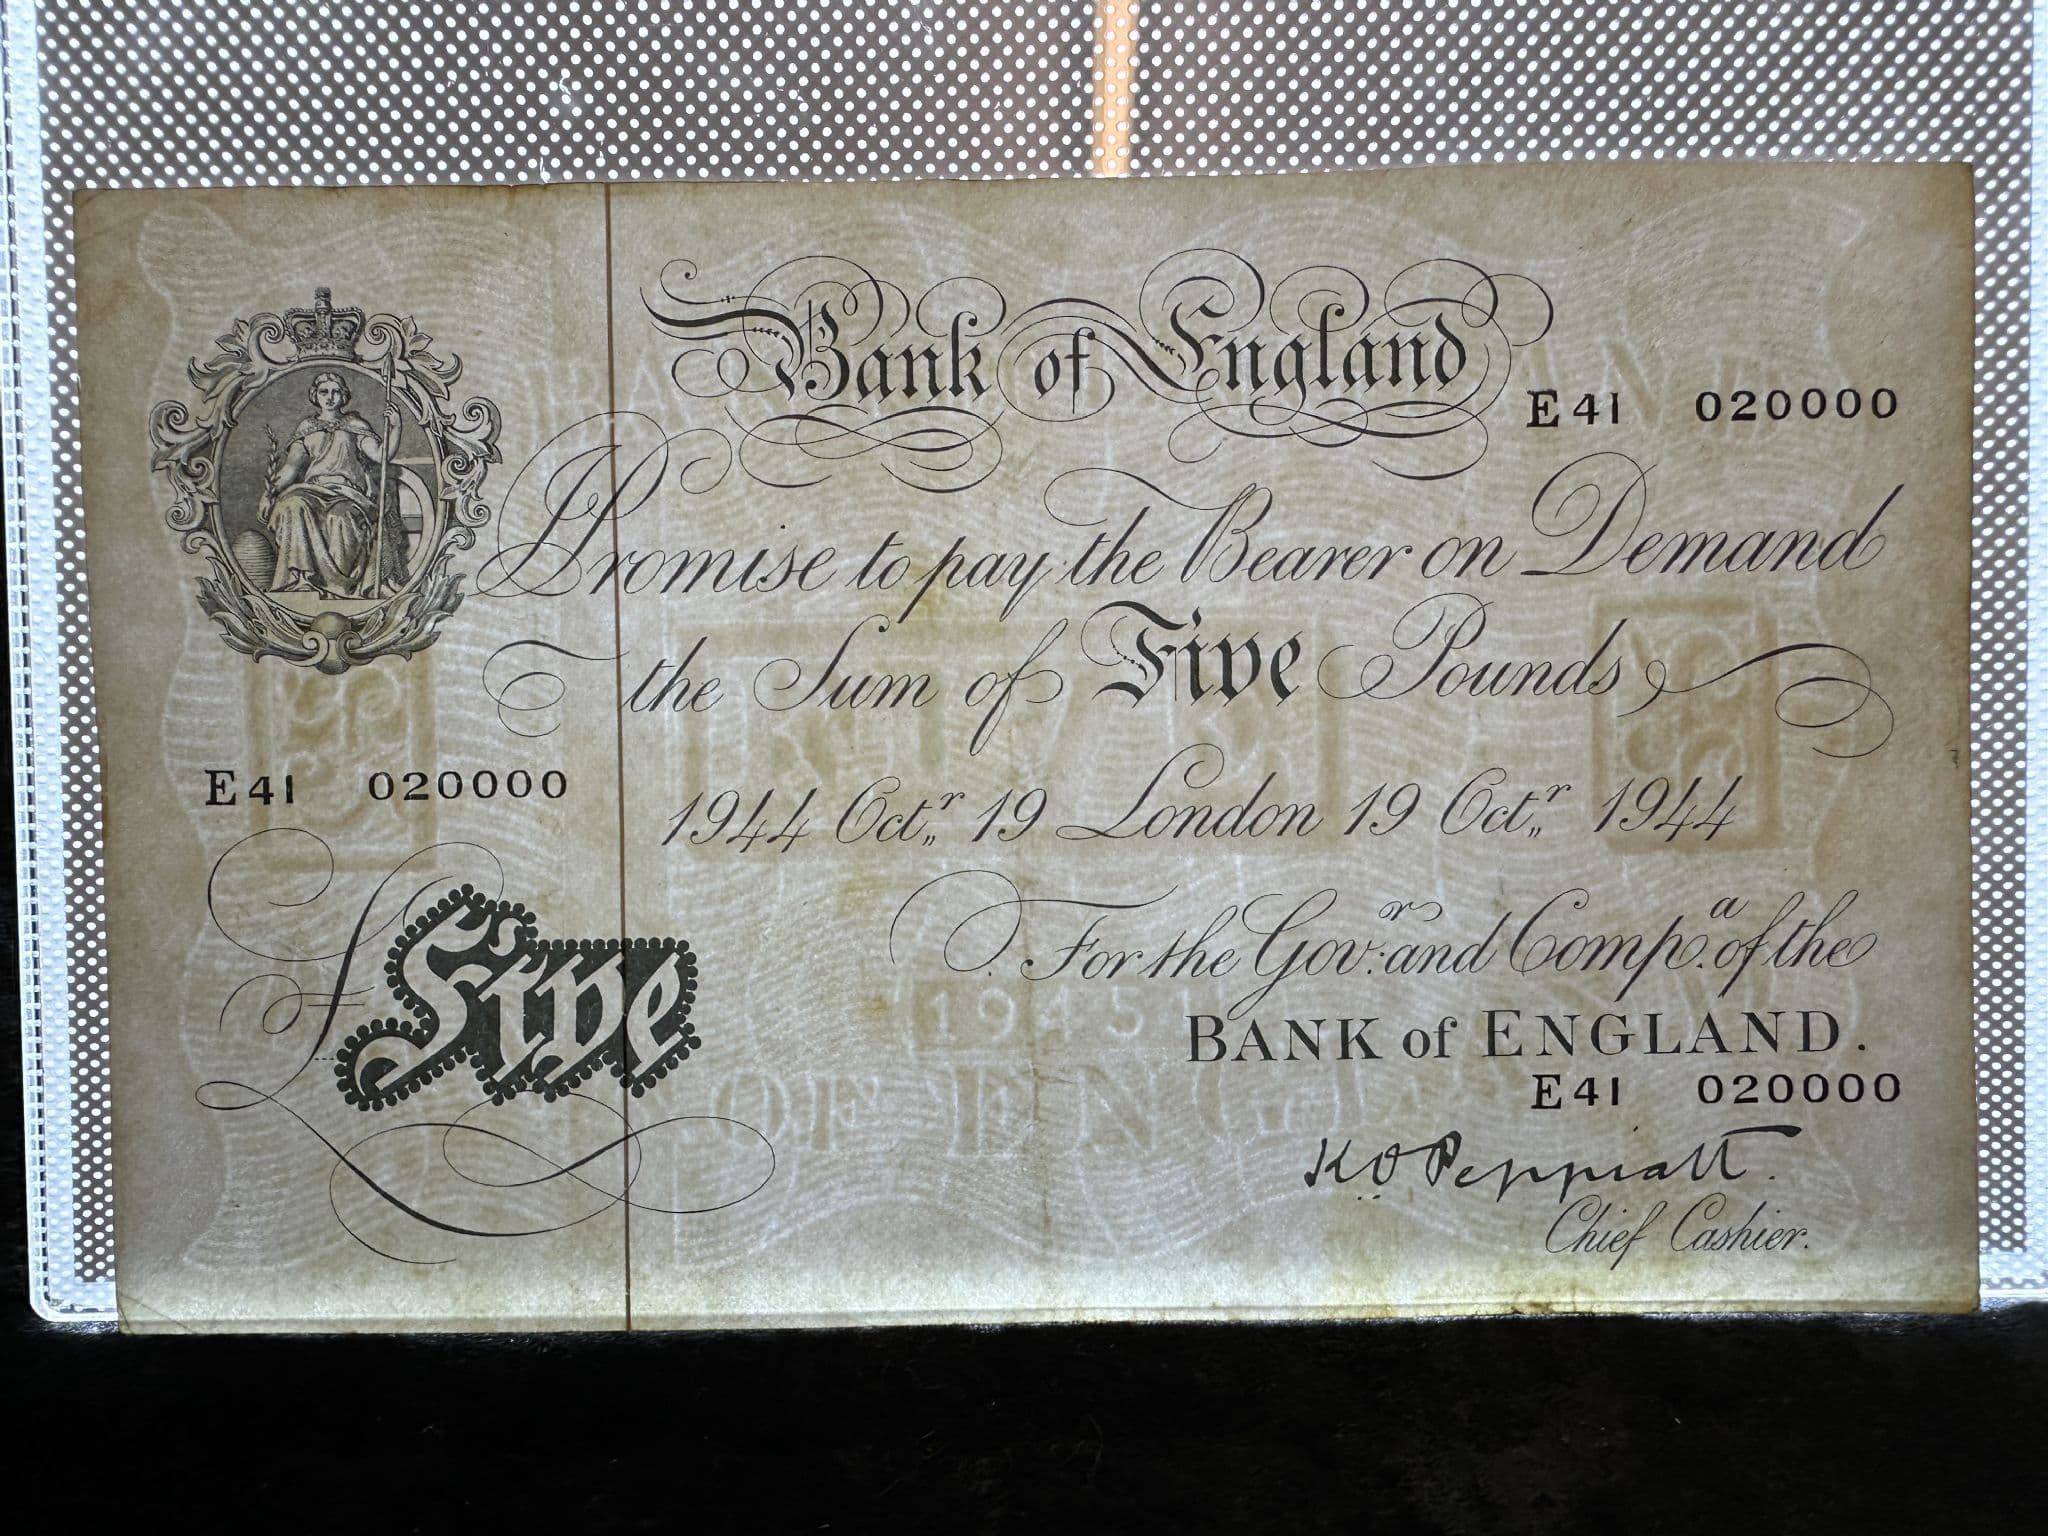 Bank of England
E 41 020000
I Promise to pay the Bearer on Demand
the Sum of Five Pounds
E 41 020000
1944 Octr 19 London 19 Octr 1944
£ Five
For the Govr: and Compa. of the
BANK of ENGLAND.
E 41 020000
K.O. Peppiatt.
Chief Cashier.
1945
OF ENGLAND